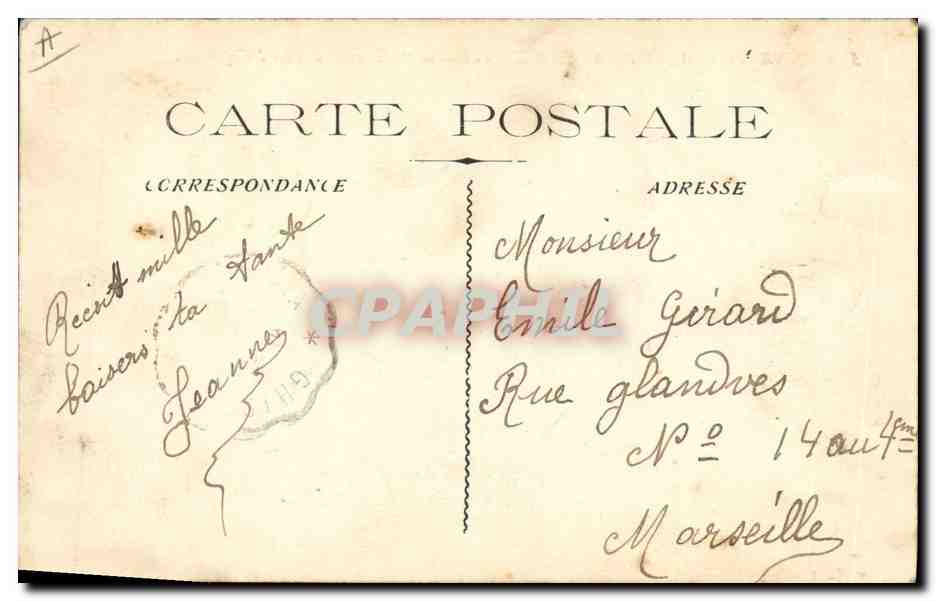 A
CARTE POSTALE
CORRESPONDANCE
ADRESSE
mille
baisers ta tante
Jeanne
Monsieur
Emile Girard
Rue glandves
N° 14 au 4em
Marseille
CPAPHIL